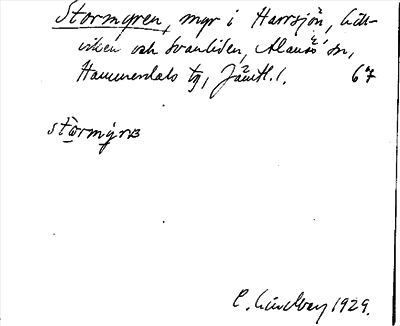 Stormyren, myr i Harrsjön, Lill-
viken och Svanliden, Alanäs sn,
Hammerdals tg, Jämtl. l. 67
stòrmýrɴ
C. Lindberg 1929.